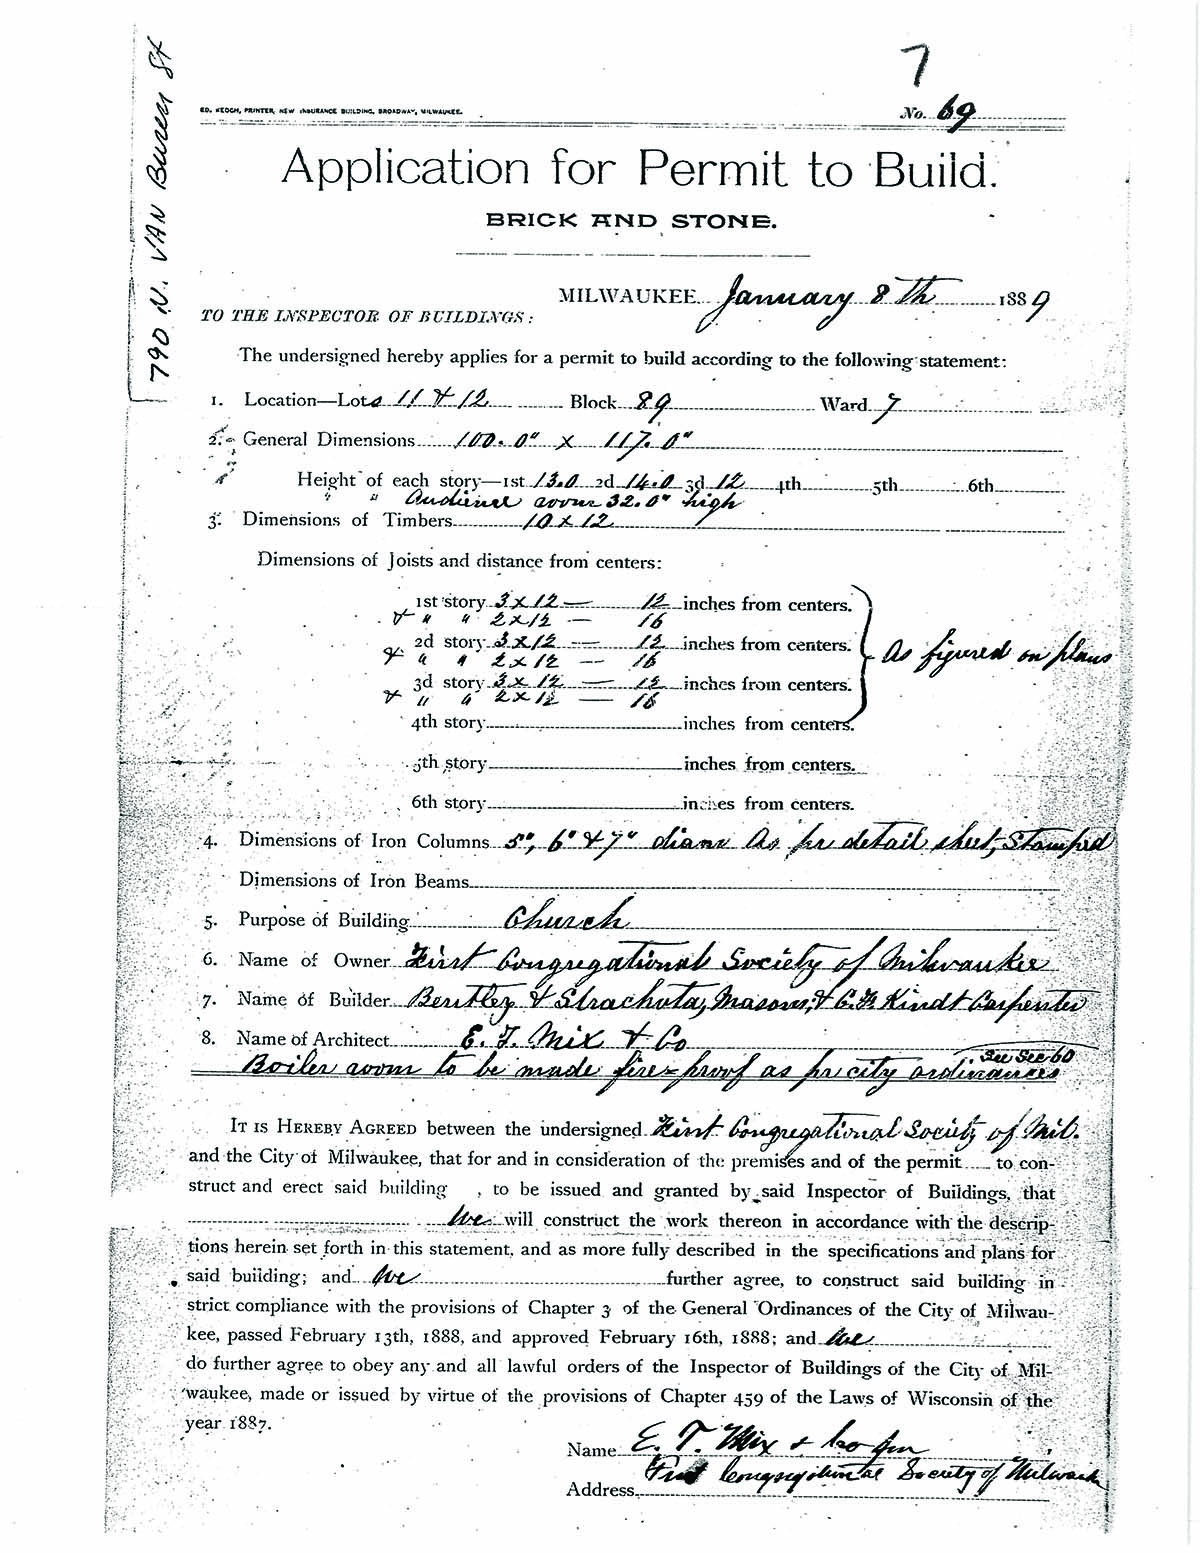 790 N. VAN Buren St
7
ED. KEOGH, PRINTER, NEW INSURANCE BUILDING, BROADWAY, MILWAUKEE.
No. 69
Application for Permit to Build.
BRICK AND STONE.
MILWAUKEE January 8th 1889
TO THE INSPECTOR OF BUILDINGS:
The undersigned hereby applies for a permit to build according to the following statement:
1. Location—Lots 11 & 12 Block 89 Ward 7
2. General Dimensions 100.0" x 117.0"
Height of each story—1st 13.0 2d 14.0 3d 12 4th 5th 6th
" " Audience room 32.0" high
3. Dimensions of Timbers 10 x 12
Dimensions of Joists and distance from centers:
1st story 3 x 12 — 12 inches from centers.
& " " 2 x 12 — 16
2d story 3 x 12 — 12 inches from centers.
& " " 2 x 12 — 16
As figured on plans
3d story 3 x 12 — 12 inches from centers.
& " " 2 x 12 — 16
4th story inches from centers.
5th story inches from centers.
6th story inches from centers.
4. Dimensions of Iron Columns 5", 6" & 7" diam As pr detail sheet, Stamped
Dimensions of Iron Beams
5. Purpose of Building Church
6. Name of Owner First Congregational Society of Milwaukee
7. Name of Builder Bentley & Strachota, Masons, & C. F. Kindt Carpenter
8. Name of Architect E. T. Mix & Co
See Sec 60
Boiler room to be made fire-proof as pr city ordinances
IT IS HEREBY AGREED between the undersigned First Congregational Society of Mil.
and the City of Milwaukee, that for and in consideration of the premises and of the permit to con-
struct and erect said building , to be issued and granted by said Inspector of Buildings, that
we will construct the work thereon in accordance with the descrip-
tions herein set forth in this statement, and as more fully described in the specifications and plans for
said building; and we further agree, to construct said building in
strict compliance with the provisions of Chapter 3 of the General Ordinances of the City of Milwau-
kee, passed February 13th, 1888, and approved February 16th, 1888; and we
do further agree to obey any and all lawful orders of the Inspector of Buildings of the City of Mil-
waukee, made or issued by virtue of the provisions of Chapter 459 of the Laws of Wisconsin of the
year 1887.
Name E. T. Mix & Co for
First Congregational Society of Milwaukee
Address.